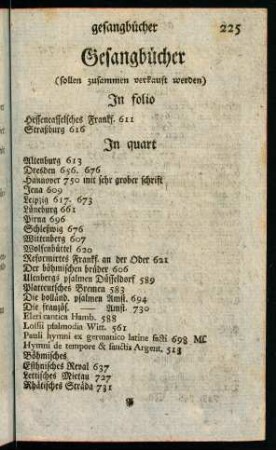 gesangbücher 225
Gesangbücher
(sollen zusammen verkauft werden)
In folio
Hessencasselsches Frankf. 611
Strasburg 616
In quart
Altenburg 613
Dresden 656. 676
Hannover 750 mit sehr grober schrift
Jena 609
Leipzig 617. 673
Lüneburg 661
Pirna 696
Schleswig 676
Wittenberg 607
Wolfenbüttel 620
Reformirtes Frankf. an der Oder 621
Der böhmischen brüder 606
Ulenbergs psalmen Düsseldorf 589
Platteutsches Bremen 583
Die holländ. psalmen Amst. 694
Die französ. — Amst. 730
Eleri cantica Hamb. 588
Lossii psalmodia Witt. 561
Pauli hymni ex germanico latine facti 698 Ms.
Hymni de tempore & sanctis Argent. 513
Böhmisches
Esthnisches Reval 637
Lettisches Mietau 727
Rhätisches Sträda 731